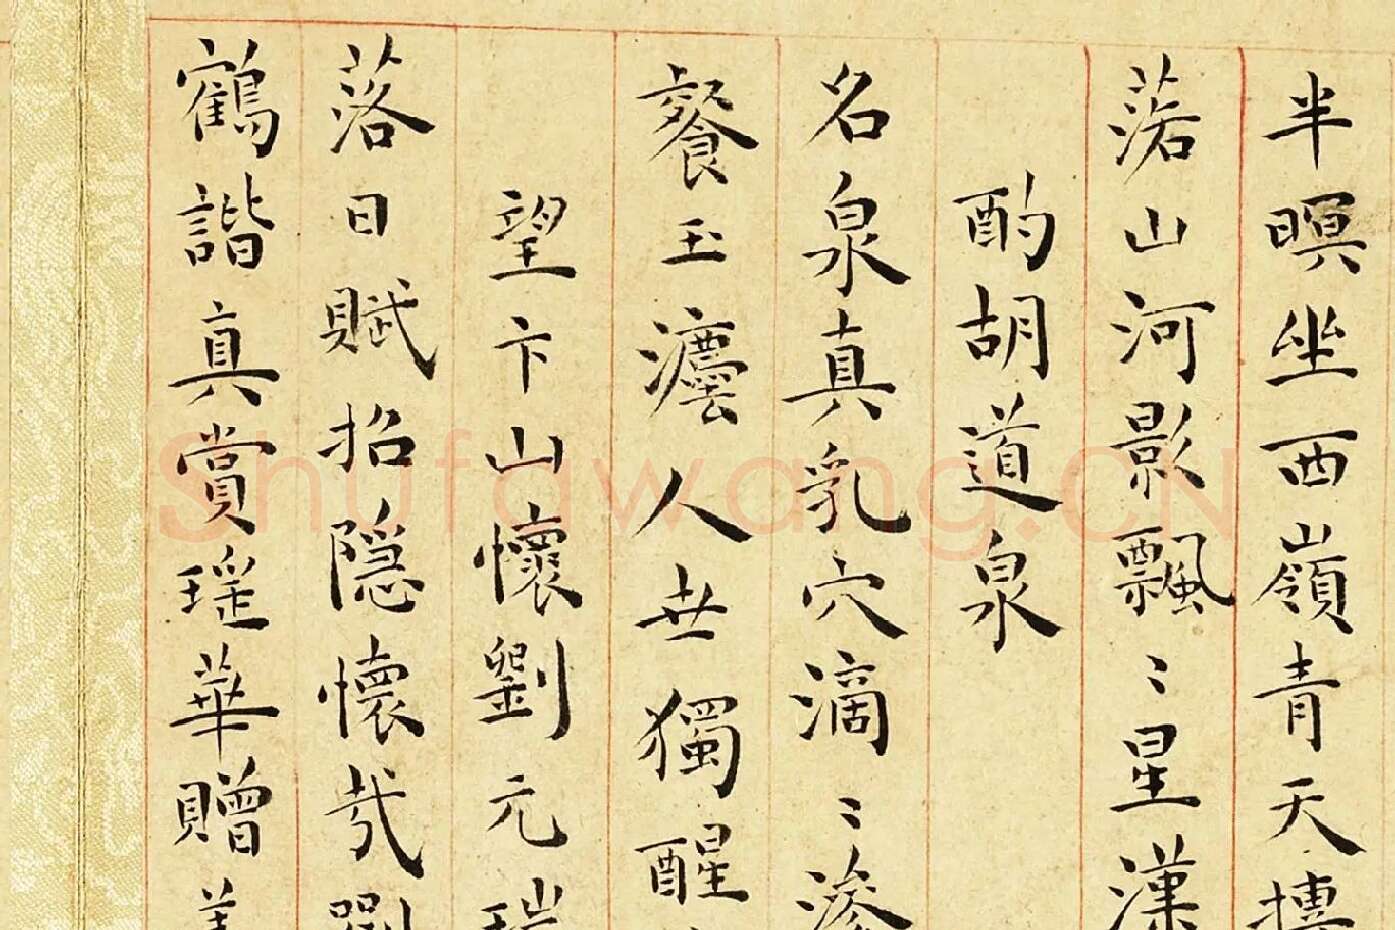 半暝坐西嶺青天摶
落山河影飄〻星漢
酌胡道泉
名泉真乳穴滴〻滲
餐玉人世獨醒
望卞山懷劉元瑞
落日賦招隱懷哉劉
鶴諧真賞瑶華贈美
Shufawang.CN